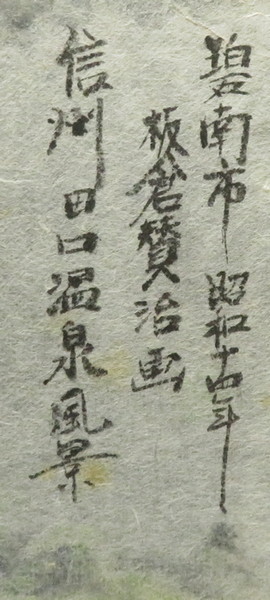 碧南市 昭和十四年
板倉賛治画
信州田口温泉風景